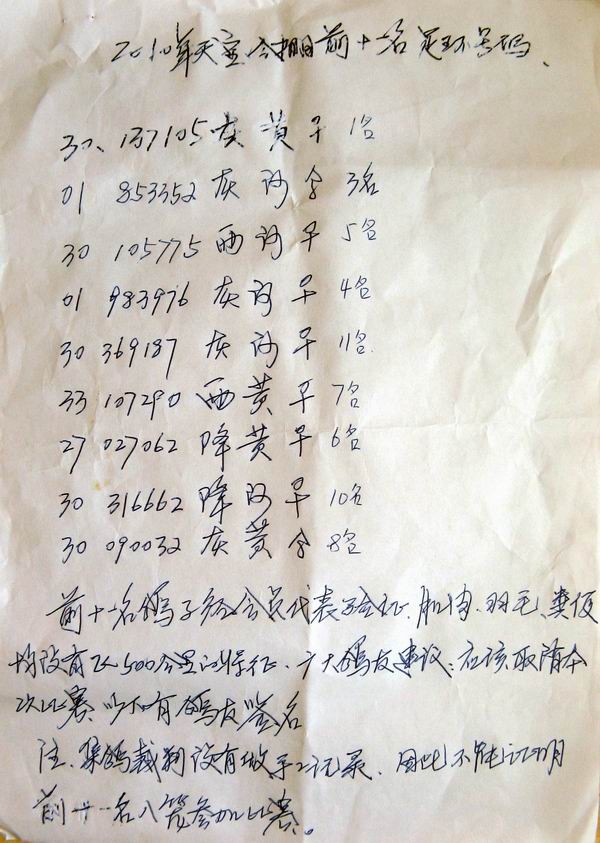 2010年天宝公棚前十名足环号码、
30、137105 灰黄子 1名
01 853352 灰沙 3名
30 105775 西沙子 5名
01 983976 灰沙子 4名
30 369187 灰沙子 11名
33 107290 西黄子 7名
27 027062 降黄子 6名
30 316662 降沙子 10名
30 090032 灰黄 8名
前十名鸽子经会员代表验证、肌肉、羽毛、粪便
均没有飞500公里的特征、广大鸽友建议:应该取消本
次比赛、以下有鸽友签名
注、集鸽裁判没有做手工记录、因此不能证明
前十名入笼参加比赛。